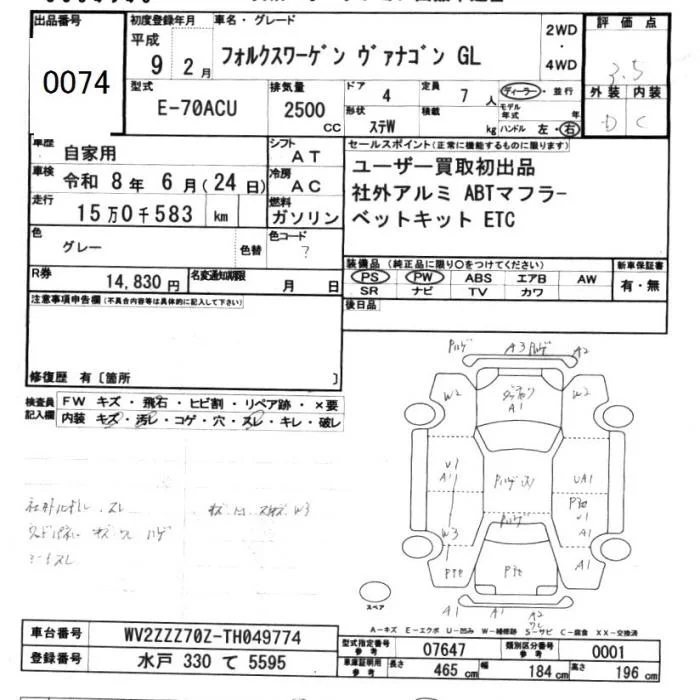 出品番号 初度登録年月 車名・グレード 評価点
0074 平成 9年 2月 フォルクスワーゲン ヴァナゴン GL 2WD・4WD 3.5
型式 排気量 ドア 定員 ディーラー・並行 外装 内装
E-70ACU 2500 CC 4 7人 モデル年式 年 D C
形状 ステW 積載 kg ハンドル 左・右
車歴 自家用 シフト AT セールスポイント(正常に機能するものに限ります)
車検 令和 8年 6月(24日) 冷房 AC ユーザー買取初出品
走行 15万0千583 km 燃料 ガソリン 社外アルミ ABTマフラー
ベットキット ETC
色 グレー 色替 色コード ?
装備品(純正品に限り○をつけてください) 新車保証書
PS PW ABS エアB AW 有・無
SR ナビ TV カワ
R券 14,830円 名変通知期限 月 日
後日品
注意事項申告欄(不具合内容等は具体的に記入して下さい)
修復歴 有〔箇所 〕
検査員記入欄 FW キズ・飛石・ヒビ割・リペア跡・×要
内装 キズ・汚レ・コゲ・穴・スレ・キレ・破レ
A3 A2
W2 A1 W2
U1 A1 UA1
U1
W3 A1
A1
A1 A1 A2
W3
スペア
A-キズ E-エクボ U-凹み W-補修跡 S-サビ C-腐食 XX-交換済
車台番号 WV2ZZZ70Z-TH049774
登録番号 水戸 330 て 5595
型式指定番号 参考 07647 類別区分番号 参考 0001
車庫証明用 参考 長さ 465 cm 幅 184 cm 高さ 196 cm